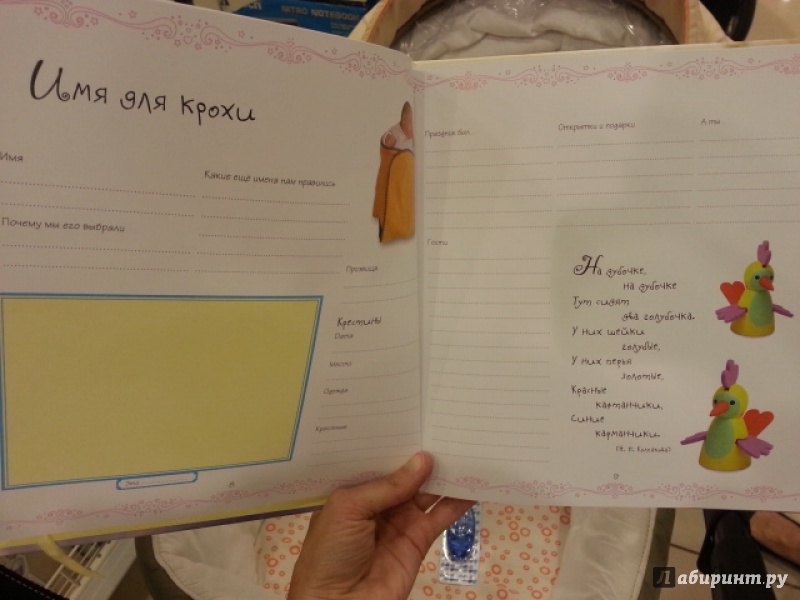 NITRO NOTEBOOK
Имя для крохи
Имя
Какие ещё имена нам нравились
Почему мы его выбрали
Прозвища
Крестины
Дата
Место
Одежда
Крестные
8
Праздник был...
Открытки и подарки
А ты...
Гости
На дубочке,
на дубочке
Тут сидят
два голубочка.
У них шейки
голубые,
У них перья
золотые,
Красные
кафтанчики,
Синие
карманчики.
9
Лабиринт.ру